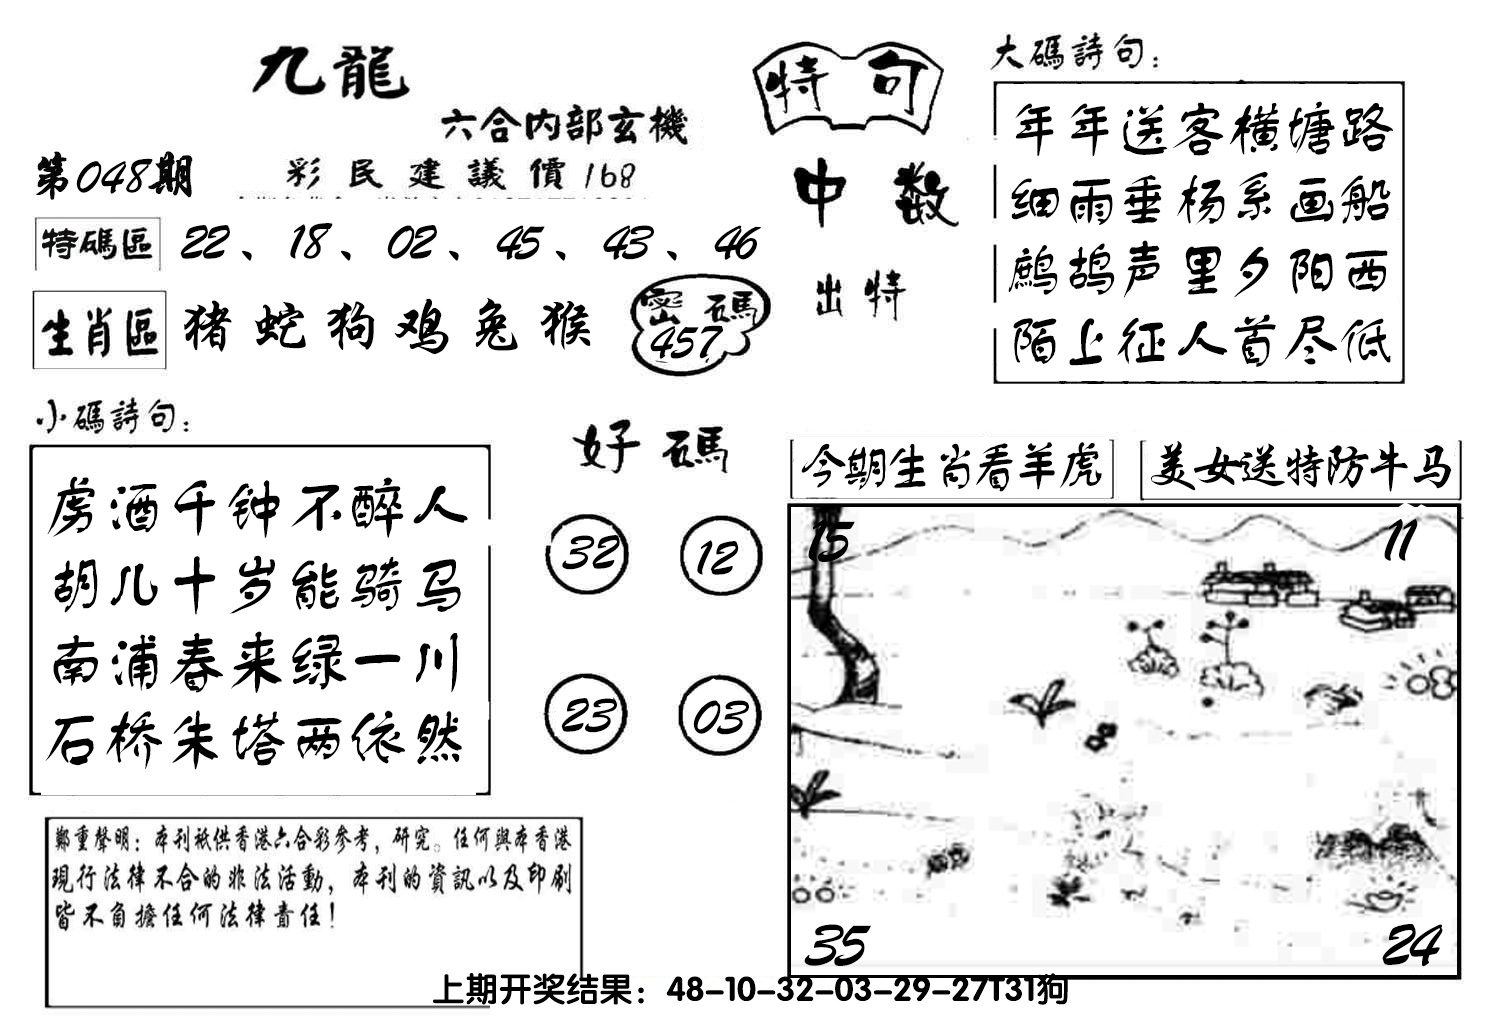 九龍
六合内部玄機
第048期
彩民建議價168
特碼區 22、18、02、45、43、46
生肖區 猪蛇狗鸡兔猴
密碼
457
特句
中数
出特
大碼詩句：
年年送客横塘路
细雨垂杨系画船
鹧鸪声里夕阳西
陌上征人首尽低
小碼詩句：
虏酒千钟不醉人
胡儿十岁能骑马
南浦春来绿一川
石桥朱塔两依然
好碼
32 12
23 03
今期生肖看羊虎
美女送特防牛马
15 11
35 24
鄭重聲明：本刊衹供香港六合彩參考，研究。任何與本香港
現行法律不合的非法活動，本刊的資訊以及印刷
皆不負擔任何法律責任！
上期开奖结果：48-10-32-03-29-27T31狗